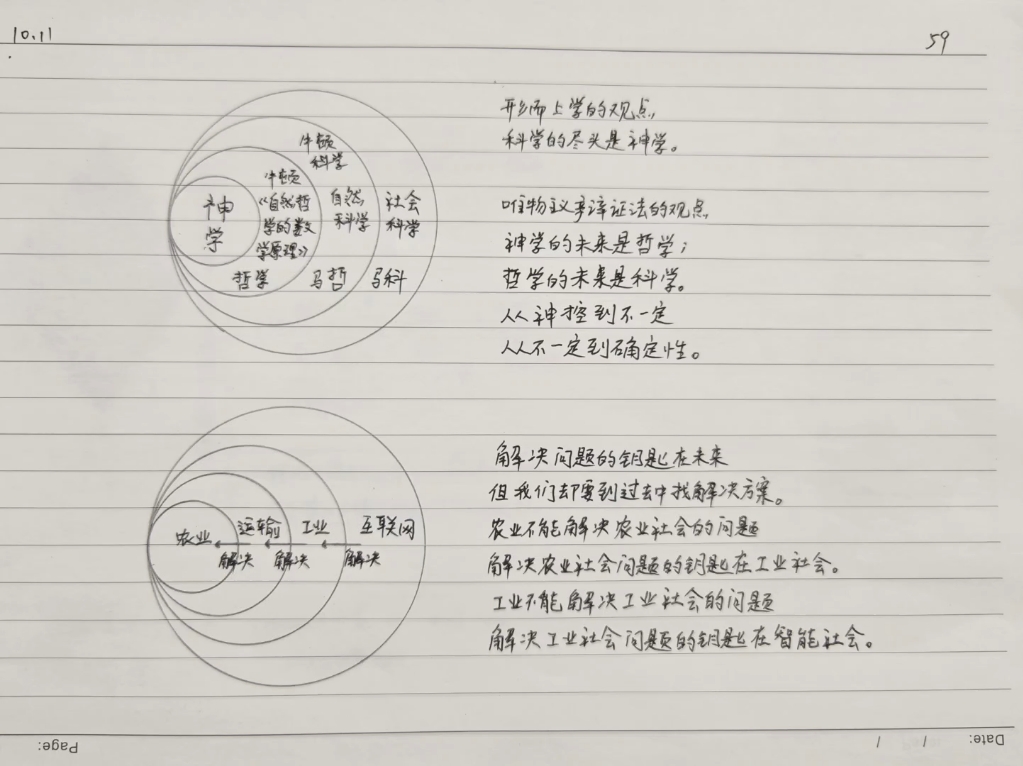 10.11
59
形而上学的观点,
科学的尽头是神学。
唯物主义辩证法的观点,
神学的未来是哲学;
哲学的未来是科学。
从神控到不一定
从不一定到确定性。
牛顿
科学
牛顿
《自然哲
学的数
学原理》
神
学
自然
科学
社会
科学
哲学
马哲
马科
解决问题的钥匙在未来
但我们却要到过去中找解决方案。
农业不能解决农业社会的问题
解决农业社会问题的钥匙在工业社会。
工业不能解决工业社会的问题
解决工业社会问题的钥匙在智能社会。
农业
运输
工业
互联网
解决
解决
解决
Page:
/ /
Date: